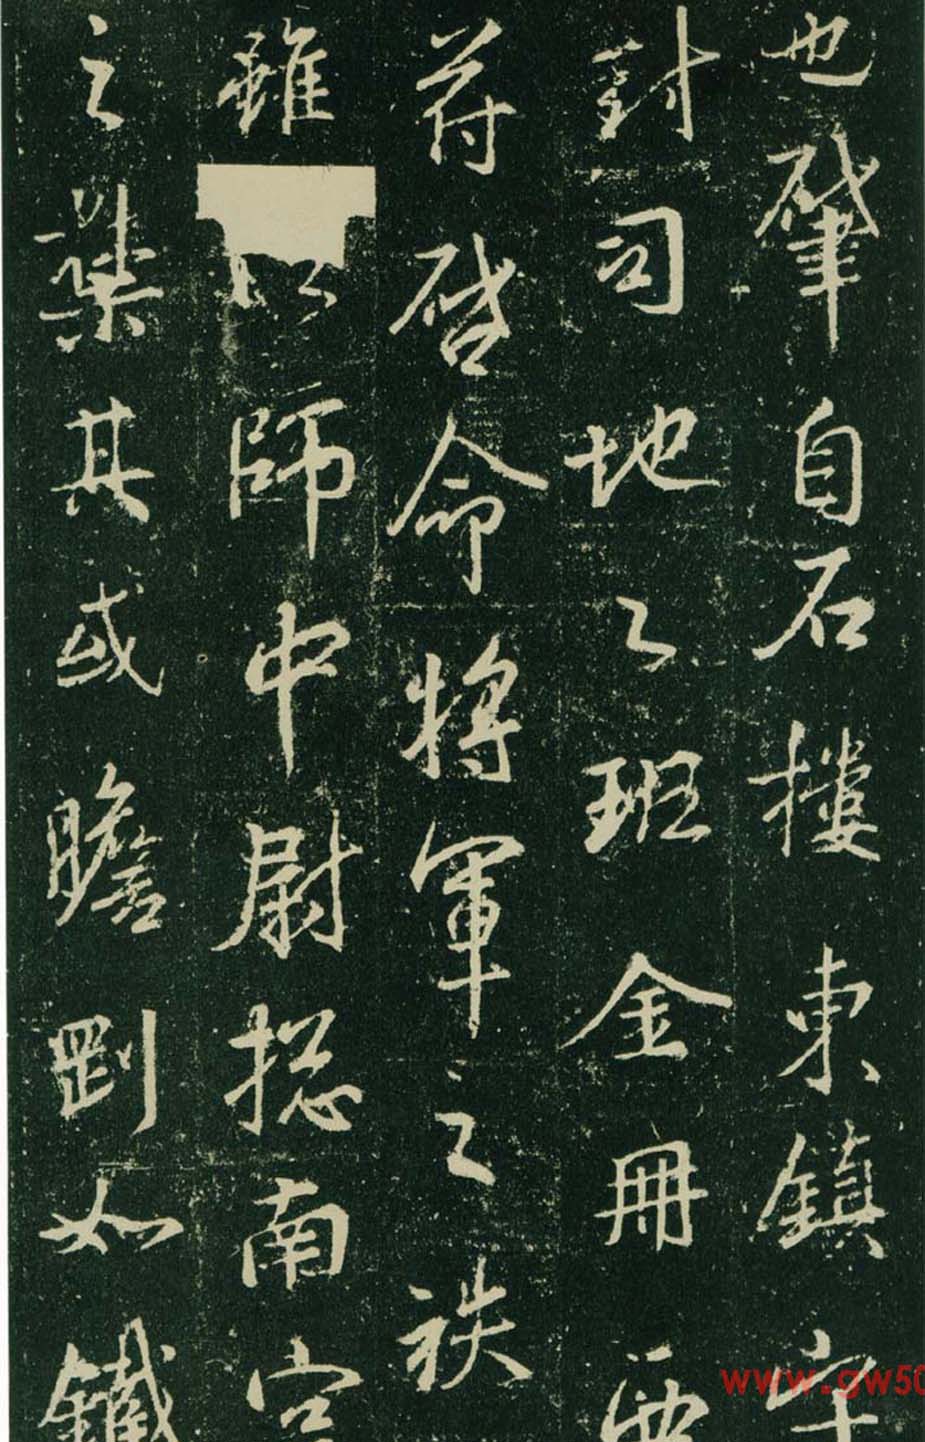 也肇自石樓東鎮
封司地之班金冊西
苻啓命將軍之秩
雖以師中尉揔南宮
之其或膽剛如鐵
www.gw50